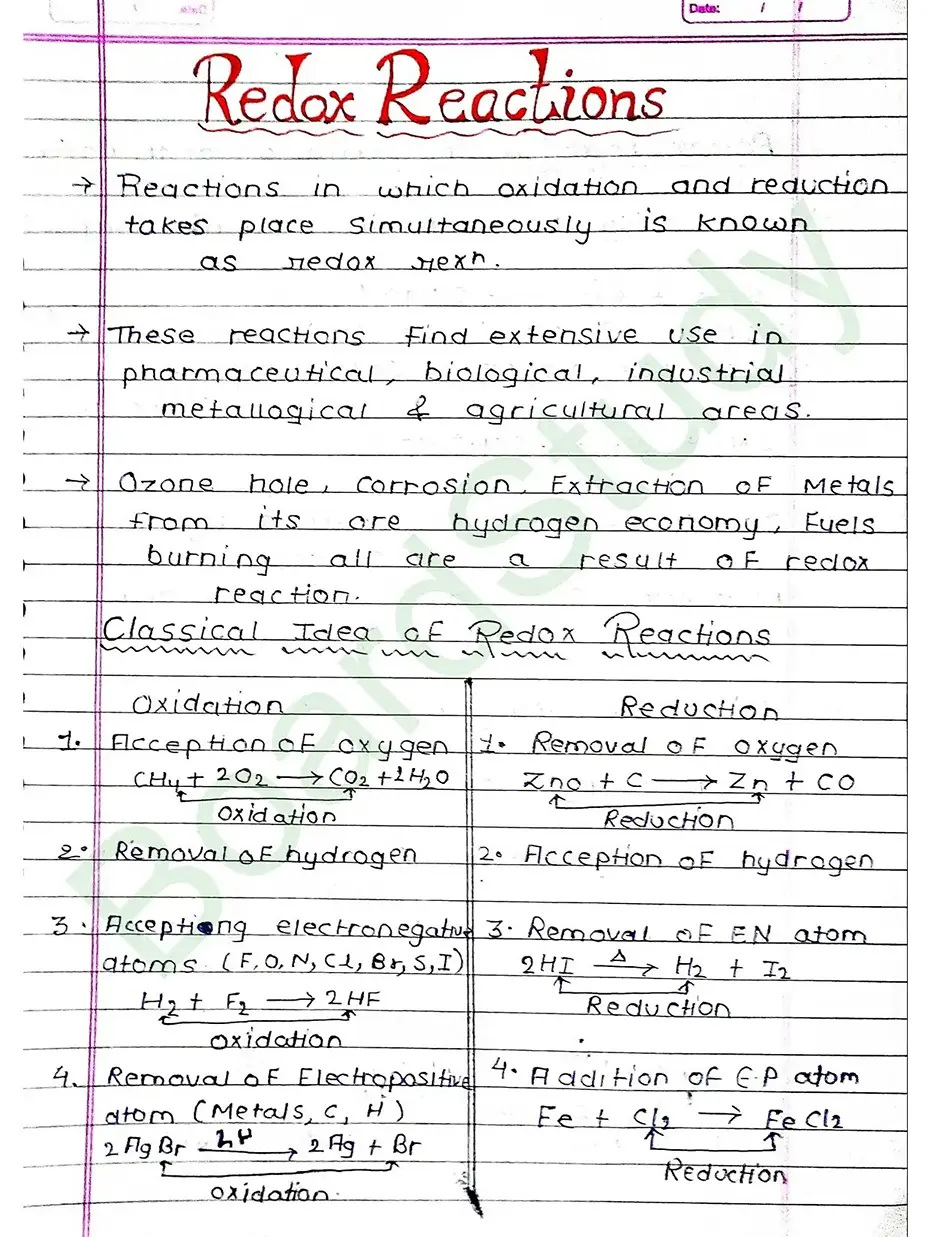 Date: / /
Redox Reactions
→ Reactions in which oxidation and reduction
takes place simultaneously is known
as redox rexn.
→ These reactions find extensive use in
pharmaceutical, biological, industrial
metallogical & agricultural areas.
→ Ozone hole, corrosion, Extraction of Metals
from its ore hydrogen economy, Fuels
burning all are a result of redox
reaction.
Classical Idea of Redox Reactions
Oxidation
1. Acception of oxygen
CH4 + 2O2 → CO2 + 2H2O
oxidation
2. Removal of hydrogen
3. Acceptiong electronegative
atoms (F, O, N, Cl, Br, S, I)
H2 + F2 → 2HF
oxidation
4. Removal of Electropositive
atom (Metals, C, H)
2AgBr → 2Ag + Br
oxidation.
Reduction
1. Removal of oxygen
ZnO + C → Zn + CO
Reduction
2. Acception of hydrogen
3. Removal of EN atom
2HI Δ→ H2 + I2
Reduction
4. Addition of E.P atom
Fe + Cl2 → FeCl2
Reduction
BoardStudy